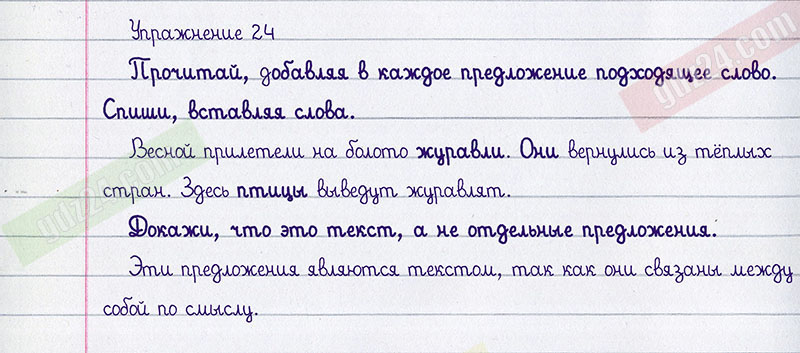 Упражнение 24
Прочитай, добавляя в каждое предложение подходящее слово.
Спиши, вставляя слова.
Весной прилетели на болото журавли. Они вернулись из тёплых
стран. Здесь птицы выведут журавлят.
Докажи, что это текст, а не отдельные предложения.
Эти предложения являются текстом, так как они связаны между
собой по смыслу.
gdz24.com
gdz24.com